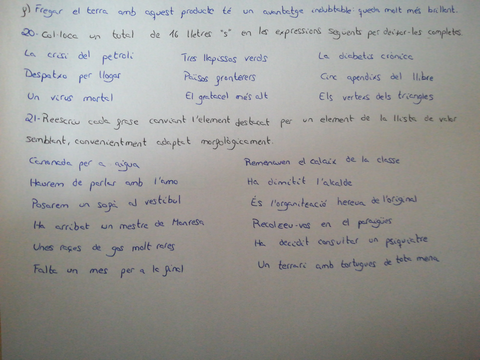 y) Fregar el terra amb aquest producte té un avantatge indubtable: queda molt més brillant.
20. Col·loca un total de 16 lletres "s" en les expressions següents per deixar-les completes
La crisi del petroli Tres llapissos verds La diabetis crònica
Despatxo per llogar Països fronterers Cinc apèndixs del llibre
Un virus mortal El gratacel més alt Els vertexs dels triangles
21. Reescriu cada frase canviant l'element destacat per un element de la llista de valor
semblant, convenientment adaptat morfològicament.
Canonada per a aigua Remenaven el calaix de la classe
Haurem de parlar amb l'amo Ha dimitit l'alcalde
Posarem un sofà al vestíbul És l'organització hereva de l'original
Ha arribat un mestre de Manresa Recolzeu-vos en el paraigües
Unes races de gos molt rares Ha decidit consultar un psiquiatre
Falta un mes per a la final Un terrari amb tortugues de tota mena